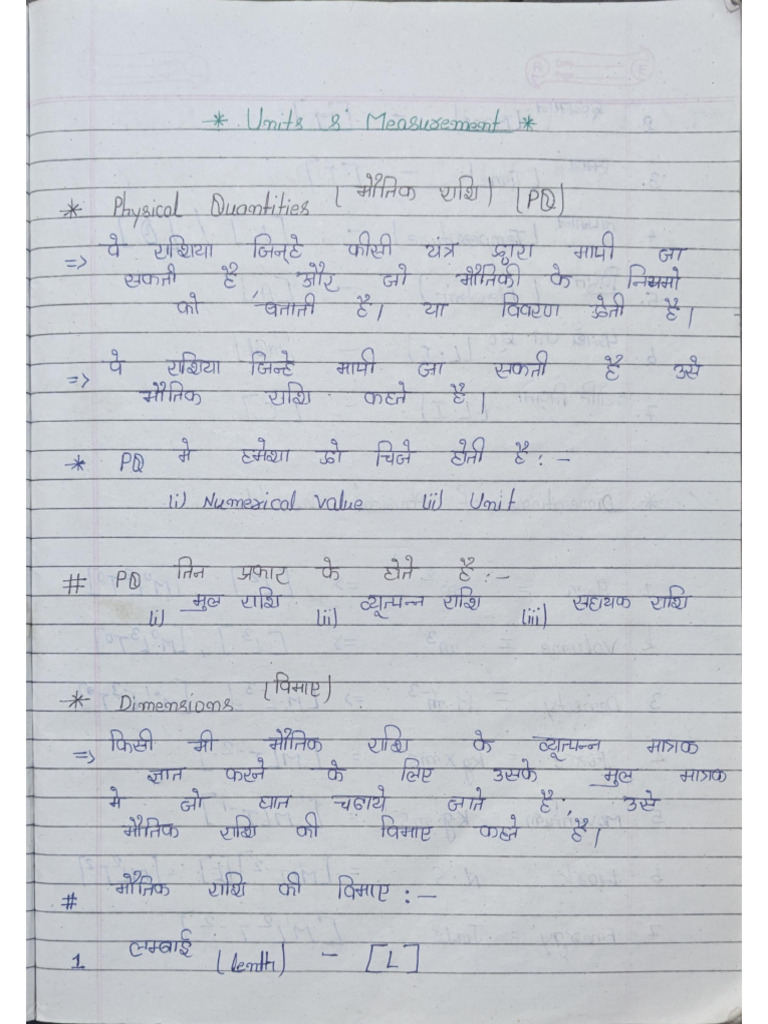 * Units & Measurement *
* Physical Quantities (भौतिक राशि) (PQ)
=> वे राशिया जिन्हे कीसी यंत्र द्वारा मापी जा
सकती है और जो भौतिकी के नियमो
को बताती है। या विवरण देती है।
=> वे राशिया जिन्हे मापी जा सकती है उसे
भौतिक राशि कहते है।
* PQ मे हमेशा दो चिजे होती है :-
(i) Numerical value (ii) Unit
# PQ तिन प्रकार के होते है :-
(i) मुल राशि (ii) व्यूत्पन्न राशि (iii) सहायक राशि
* Dimensions (विमाए)
=> किसी भी भौतिक राशि के व्यूत्पन्न मात्रक
ज्ञात करने के लिए उसके मुल मात्रक
मे जो घात चढाये जाते है, उसे
भौतिक राशि की विमाए कहते है।
# भौतिक राशि की विमाए :-
1 लम्बाई (lenth) - [L]